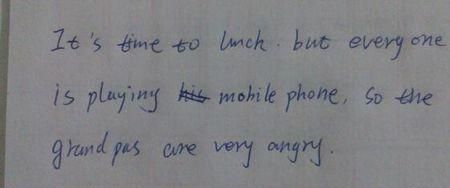 It's time to lunch. but every one
is playing his mobile phone, so the
grand pas are very angry.